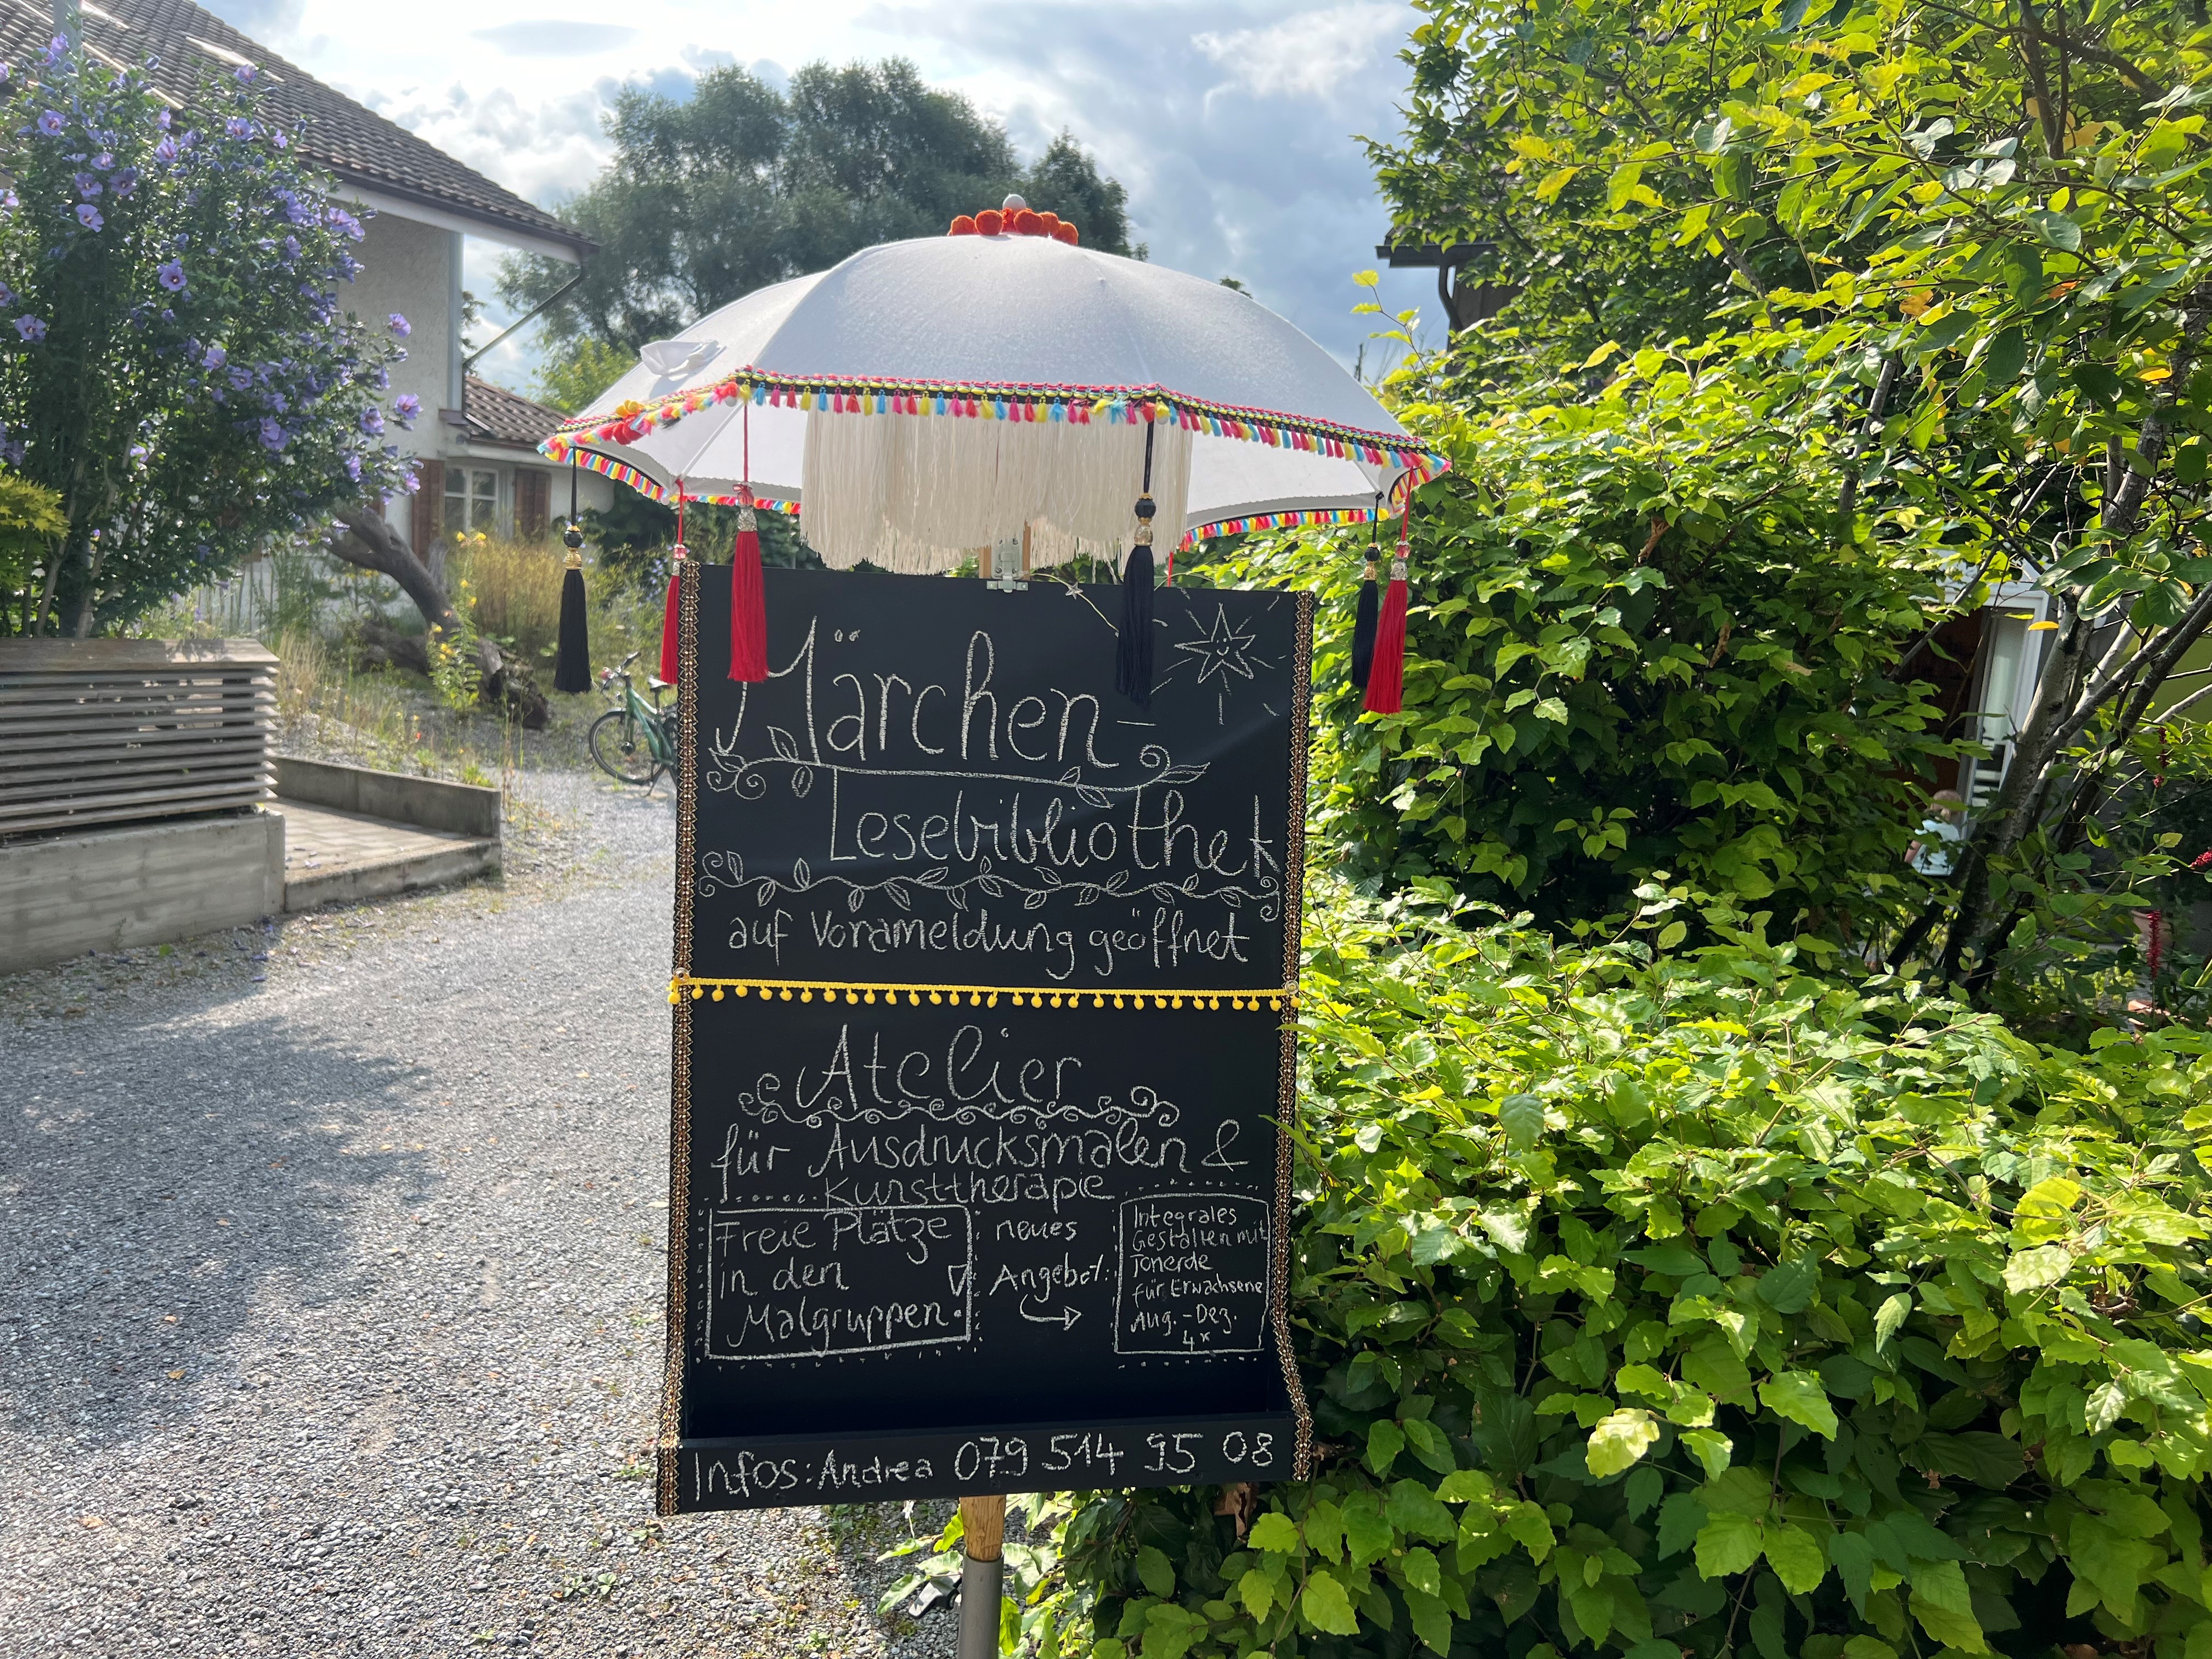 Märchen-
Lesebibliothek
auf Voranmeldung geöffnet
Atelier
für Ausdrucksmalen &
Kunsttherapie
Freie Plätze
in den
Malgruppen.
neues
Angebot:
Integrales
Gestalten mit
Tonerde
für Erwachsene
Aug.-Dez.
4x
Infos: Andrea 079 514 95 08